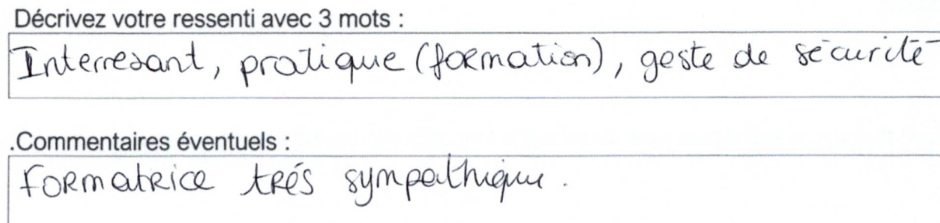 Décrivez votre ressenti avec 3 mots :
Interresant, pratique (formation), geste de sécurité
.Commentaires éventuels :
Formatrice trés sympathique.